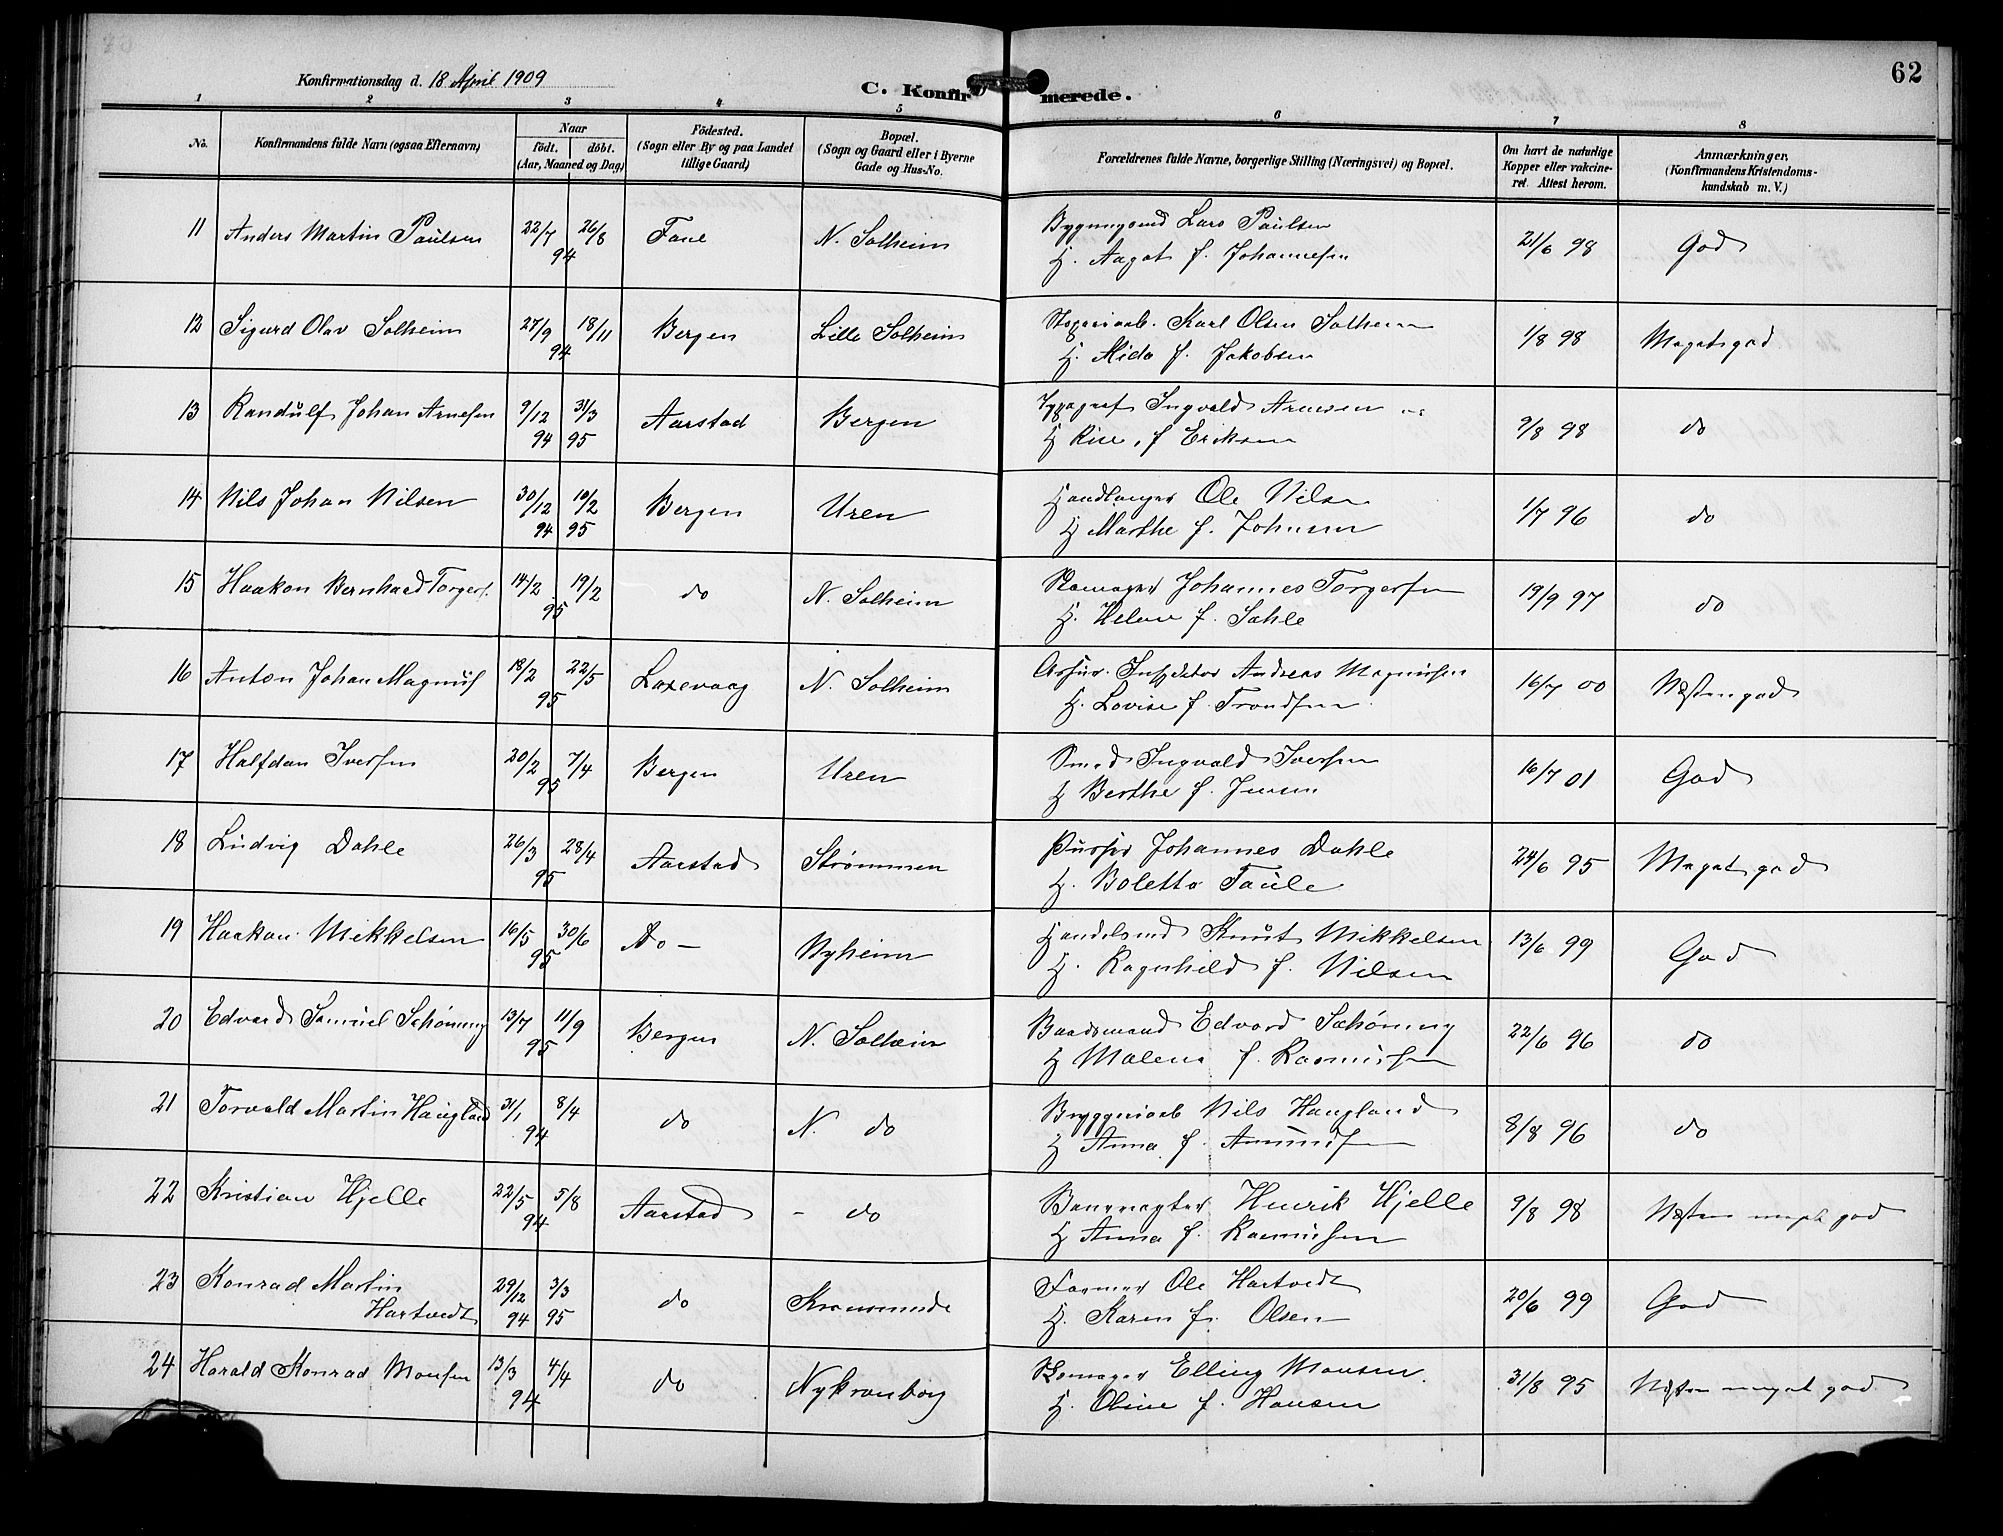 62
Konfirmationsdag d. 18 April 1909
C. Konfirmerede.
1 2 3 4 5 6 7 8
No. Konfirmandens fulde Navn (ogsaa Efternavn) Naar født. døbt. (Aar, Maaned og Dag) Födested. (Sogn eller By og paa Landet tillige Gaard) Bopæl. (Sogn og Gaard eller i Byerne Gade og Hus-No. Forældrenes fulde Navne, borgerlige Stilling (Næringsvei) og Bopæl. Om havt de naturlige Kopper eller vakcineret. Attest herom. Anmærkninger. (Konfirmandens Kristendomskundskab m. V.)
11 Anders Martin Paulsen 22/7 26/8 94 Fane N. Solheim Lars Paulsen 21/6 98 God
H. Aagot f. Johannesen
12 Sigurd Olav Solheim 27/9 18/11 94 Bergen Lille Solheim Karl Olsen Solheim 1/8 98 Megetgod
H. f. Jakobsen
13 Randulf Johan Arnesen 9/12 94 31/3 95 Aarstad Bergen Typograf Ingvald Arnesen 9/8 98 do
H f Eriksen
14 Nils Johan Nilsen 30/12 94 10/2 95 Bergen Uren Handlanger Ole Nilsen 1/7 96 do
H Marthe f. Johnsen
15 Haakon Bernhard Torgers. 14/2 19/2 95 do N. Solheim Skomager Johannes Torgersen 19/9 97 do
H. Helene f. Sahle
16 Anton Johan Magnus 18/2 22/5 95 Laxevaag N. Solheim Andreas Magnussen 16/7 00 Næstengod
H. Lovise f. Trondsen
17 Halfdan Iversen 20/2 7/4 95 Bergen Uren Smed Ingvald Iversen 16/7 01 God
H Berthe f. Jensen
18 Ludvig Dahle 26/3 28/4 95 Aarstad Strømmen Pusser Johannes Dahle 24/6 95 Meget god
H. Bolette Taule
19 Haakon Mikkelsen 16/5 30/6 95 do - Nyheim Handelsmd Knut Mikkelsen 13/6 99 God
H. Ragnhild f. Nilsen
20 Edvard Samuel Schøning 13/7 11/9 95 Bergen N. Solheim Baadsmand Edvard Schøning 22/6 96 do
H Malene f. Rasmussen
21 Torvald Martin Haugland 31/1 8/4 94 do N. do Bryggeriarb Nils Haugland 8/8 96 do
H Anna f. Amundsen
22 Kristian Hjelle 22/5 5/8 94 Aarstad - do Banevogter Henrik Hjelle 9/8 98 Næsten meget god
H Anna f. Rasmussen
23 Konrad Martin Hartvedt 29/12 94 3/3 95 do Kronsminde Former Ole Hartvedt 20/6 99 God
H. Karen f. Olsen
24 Harald Konrad Monsen 13/3 4/4 94 do Nykronborg Skomager Elling Monsen 31/8 95 Næsten meget god
H. Oline f. Hansen